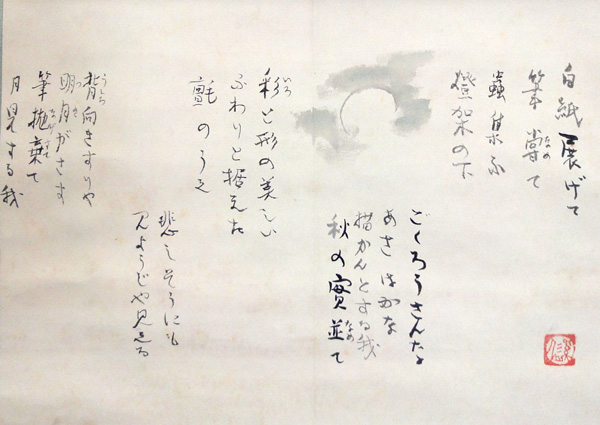 白紙展げて
筆嘗て
なめ
蟲集ふ
燈架の下
ごくろうさん
あさはかな
描かんとする我
秋の實並て
なめ
彩と形の美しい
いろ
ふわりと据えた
氈のうえ
悲しそうにも
見える
背向きすりや
うしろ
明月がさす
つき
筆抛棄て
なげすて
月見する我